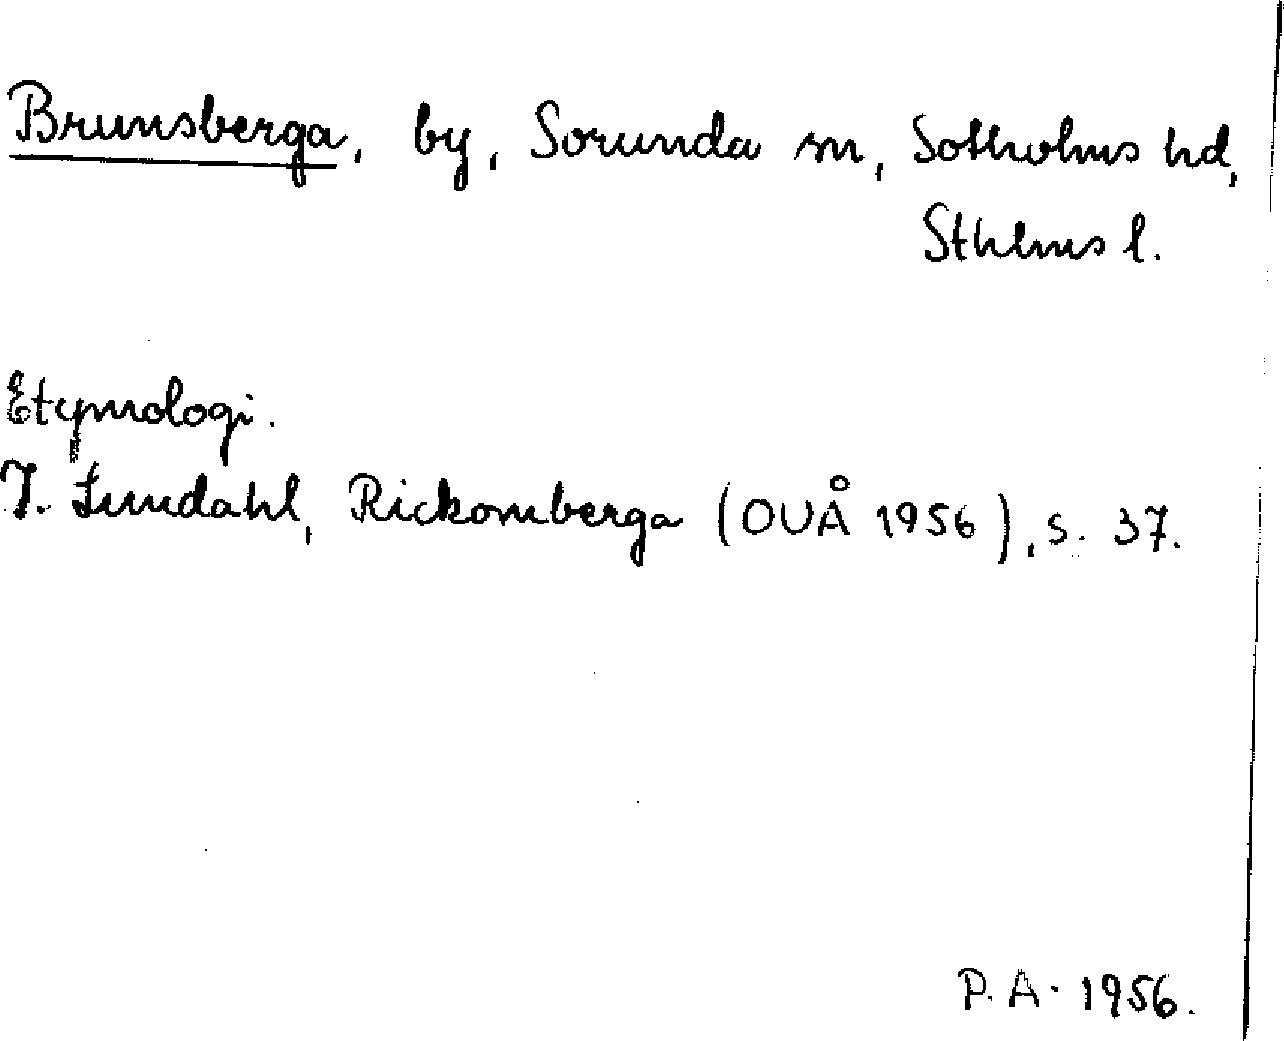 Brunsberga, by, Sorunda sn, Sotholms hd,
Sthlms l.
Etymologi.
I. Lundahl, Rickomberga (OUÅ 1956), s. 37.
P. A. 1956.